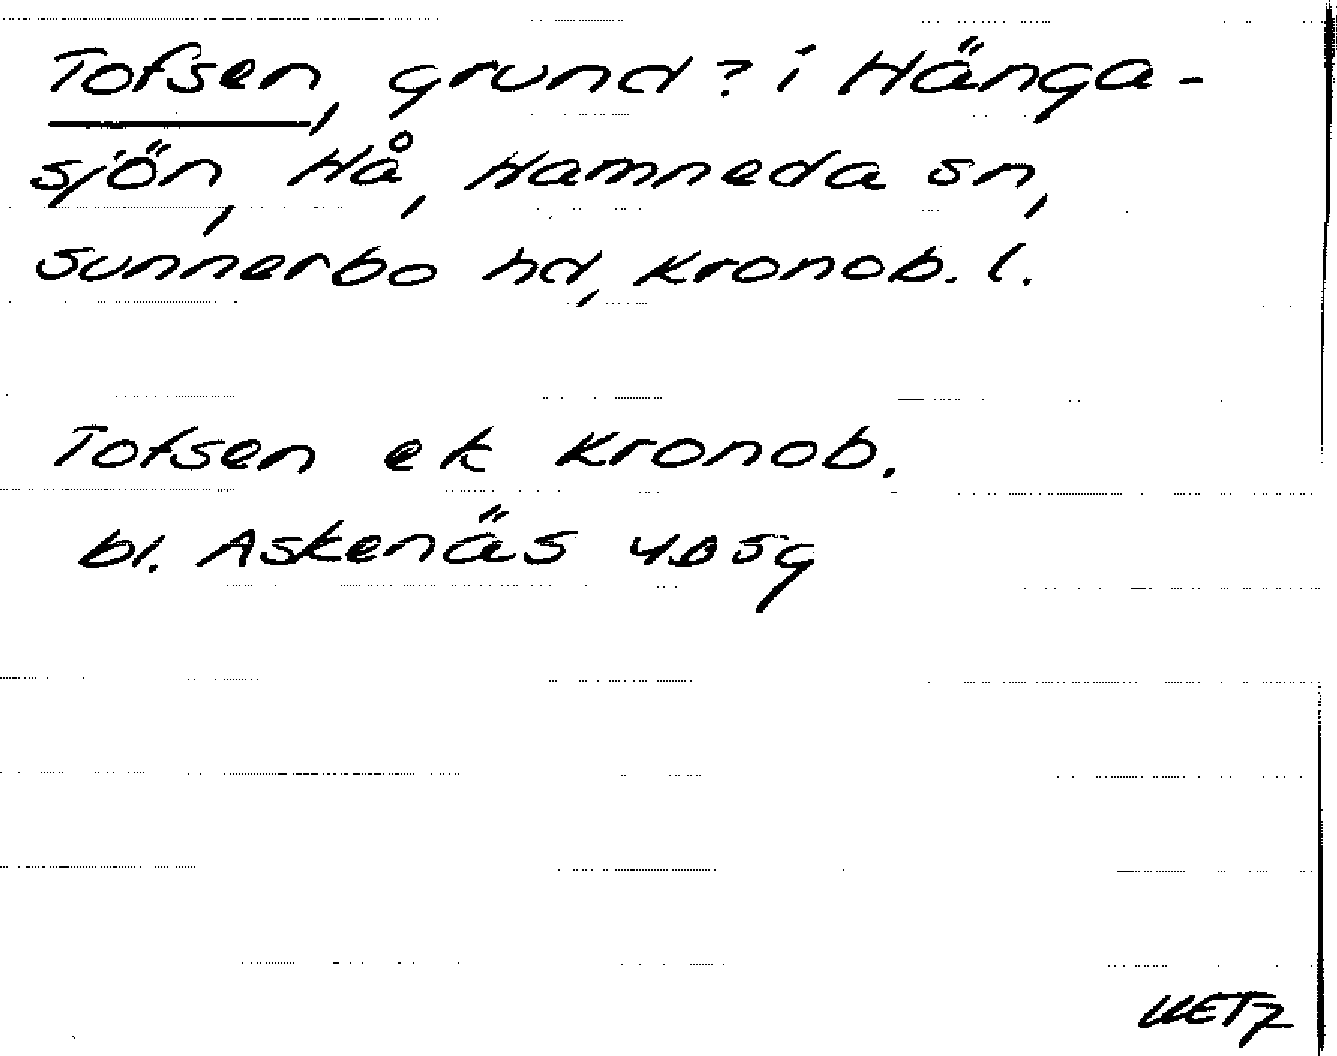 Tofsen, grund? i Hänga-
sjön, Hå, Hamneda sn,
Sunnerbo hd, Kronob. l.
Tofsen ek Kronob.
bl. Askenäs 4D5g